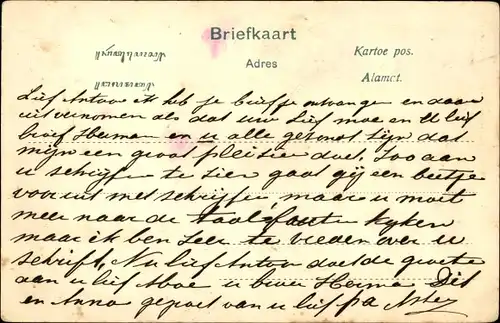 Briefkaart
Adres
Kartoe pos.
Alamat.
Lief Antoon ik heb je briefje ontvangen en daar
uit vernomen als dat uw Lief moe en U lief
broer Herman en u alle gezont zijn dat
mijn een groot pleizier doet. Zoo aan
u schrijffe te zien gaat gij een beetje
voor uit met schrijffe, maar u moet
meer naar de taal faute kijken
maar ik ben zeer te vreden over u
schrift, Nu lief Antoon doet de groete
aan u lief Moe u broer Herman
en Anna gegroet van u lief pa